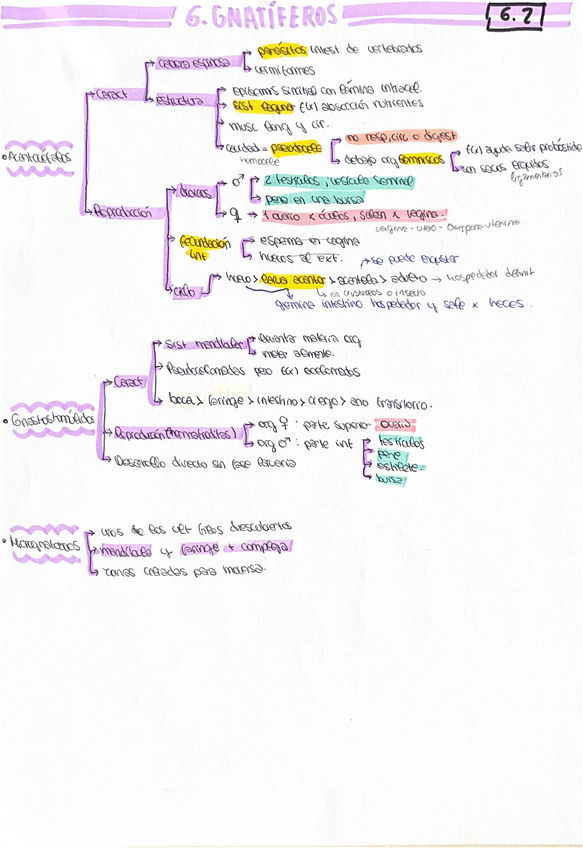 6. GNATÍFEROS
6.2
parásitos intest de vertebrados
Cabeza espinosa
vermiformes
Caract
epidermis sincitial con lámina intracel.
estructura
sist lagunar f(x) absorción nutrientes
musc long y cir.
no resp, circ o digest
cavidad = pseudocele
hemocele
f(x) ayuda salir probóscide
debajo org lemniscos
son sacos erguidos
ligamentarios
• Acantocéfalos
♂
2 testículos, vesícula seminal
dioicas
pene en una bursa
Reproducción
♀
1 ovario × óvulos, salen × vagina.
vagina - útero - campana uterina.
fecundación
int
esperma en vagina
huevos al ext.
se puede enquistar
ciclo
huevo > larva acantor > acantela > adulto → hospedador definit
en crustáceos o insecto
germina intestino hospedador y sale × heces.
sist mandibular
levantar materia org
moler alimento.
Caract
Pseudocelomados pero f(x) acelomados
boca > faringe > intestino > ciego > ano transitorio.
• Gnastostomúlidos
Reproducción (hermafroditas)
org ♀: parte superior ovario
org ♂: parte inf
testículos
pene
estilete.
bursa
Desarrollo directo sin fase larvaria
unos de los últ filos descubiertos
• Micrognatozoos
mandíbula y faringe + compleja
zonas ciliadas para moverse.